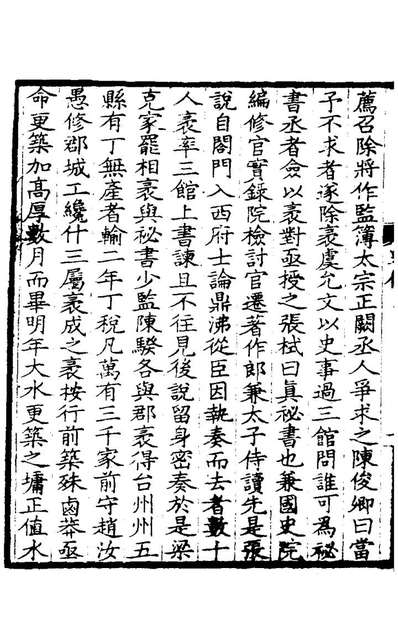 薦召除將作監簿太宗正闕丞人爭求之陳俊卿曰當
予不求者遂除袤虞允文以史事過三館問誰可為祕
書丞者僉以袤對亟授之張栻曰真祕書也兼國史院
編修官實錄院檢討官遷著作郎兼太子侍讀先是張
說自閤門入西府士論鼎沸從臣因執奏而去者數十
人袤率三館上書諫且不往見後說留身密奏於是梁
克家罷相袤與祕書少監陳騤各與郡袤得台州州五
縣有丁無產者輸二年丁稅凡萬有三千家前守趙汝
愚修郡城工纔什三屬袤成之袤按行前築殊鹵莽亟
命更築加高厚數月而畢明年大水更築之墉正值水